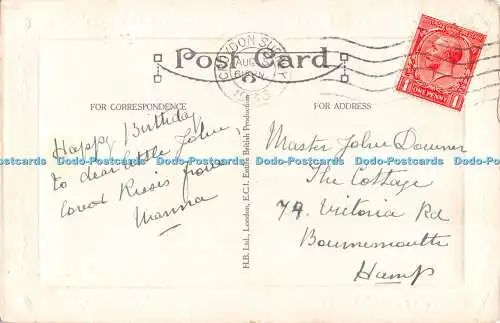 CROYDON SURREY
AUG
1933
Post Card
ONE PENNY
FOR CORRESPONDENCE
FOR ADDRESS
Happy Birthday
to dear little John,
love & Kisses from
Manna
H.B. Ltd., London, E.C.1. Entire British Production
Master John Downer
The Cottage
79. Victoria Rd
Bournemouth
Hamp
Dodo-Postcards Dodo-Postcards Dodo-Postcards Dodo-Postcards Dodo-Postcards Dodo-Postcards